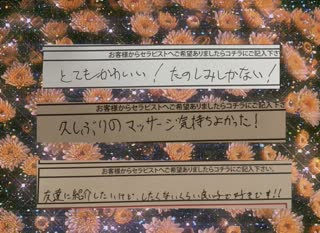 お客様からセラピストへご希望ありましたらコチラにご記入下さ
とてもかわいい!たのしみしかない!
お客様からセラピストへご希望ありましたらコチラにご記入下さ
久しぶりのマッサージ気持ちよかった!
お客様からセラピストへご希望ありましたらコチラにご記入下さい。
友達に紹介したいけど、したくないくらい良い子で好きです!!